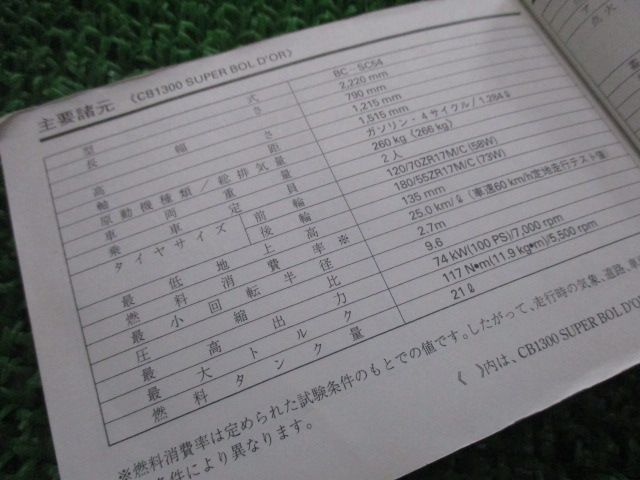 主要諸元 《CB1300 SUPER BOL D'OR》
型式 BC-SC54
長さ 2,220 mm
幅 790 mm
高さ 1,215 mm
軸距 1,515 mm
原動機種類/総排気量 ガソリン・4サイクル/1.284ℓ
車両重量 260 kg《266 kg》
乗車定員 2人
タイヤサイズ 前輪 120/70ZR17M/C (58W)
後輪 180/55ZR17M/C (73W)
最低地上高 135 mm
燃料消費率※ 25.0 km/ℓ(車速60 km/h定地走行テスト値)
最小回転半径 2.7m
圧縮比 9.6
最高出力 74 kW(100 PS)/7,000 rpm
最大トルク 117 N•m(11.9 kg•m)/5,500 rpm
燃料タンク量 21ℓ
※燃料消費率は定められた試験条件のもとでの値です。したがって、走行時の気象、道路、車
条件により異なります。
《 》内は、CB1300 SUPER BOL D'OR
点火